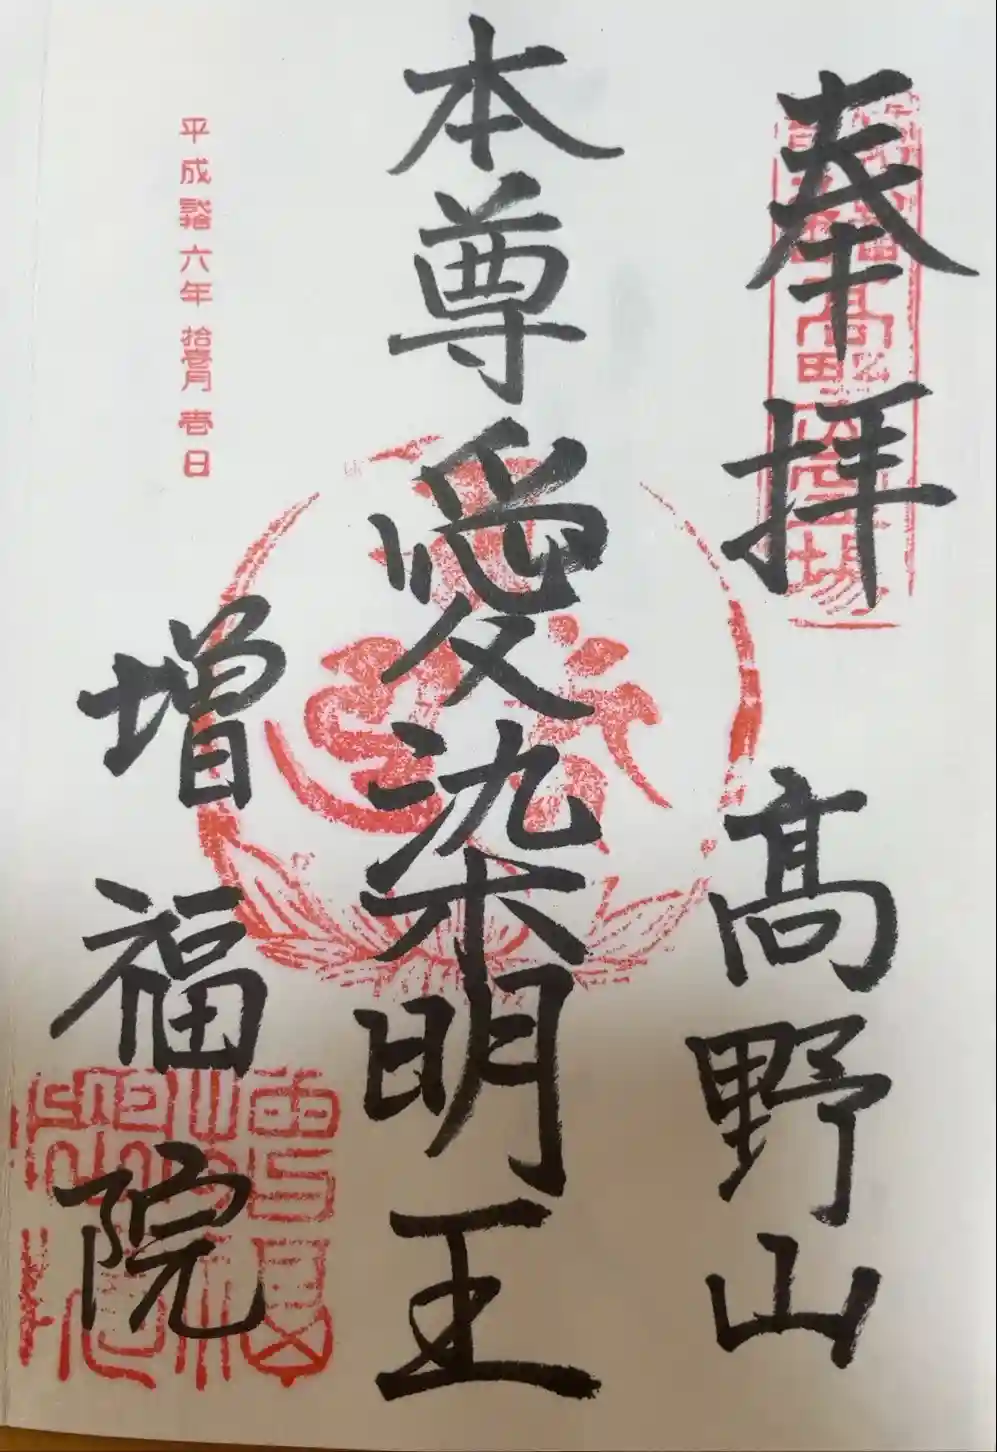 奉拝 髙野山
本尊愛染明王
平成弐拾六年拾壱月壱日
増福院